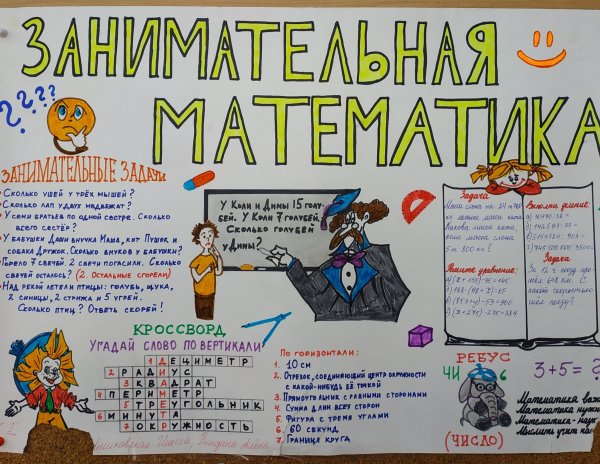 ЗАНИМАТЕЛЬНАЯ
МАТЕМАТИКА
????
ЗАНИМАТЕЛЬНЫЕ ЗАДАЧИ
Сколько ушей у трёх мышей?
Сколько лап у двух медвежат?
У семи братьев по одной сестре. Сколько
всего сестёр?
У бабушки Даши внучка Маша, кот Пушок и
собака Дружок. Сколько внуков у бабушки?
Горело 7 свечей. 2 свечи погасили. Сколько
свечей осталось? (2. Остальные сгорели)
Над рекой летели птицы: голубь, щука,
2 синицы, 2 стрижа и 5 угрей.
Сколько птиц? Ответь скорей!
У Коли и Дины 15 голу-
бей. У Коли 7 голубей.
Сколько голубей
у Дины?
Задача
Маса слона на 24
легче массы кита
Какова масса кита
если масса слона
5т 800 кг?
Решите уравнение:
Выполни деление:
Задача
За 12 ч поезд про-
шёл 648 км. С
какой скоростью
шёл поезд?
КРОССВОРД
УГАДАЙ СЛОВО ПО ВЕРТИКАЛИ
1 ДЕЦИМЕТР
2 РАДИУС
3 КВАДРАТ
4 ПЕРИМЕТР
5 ТРЕУГОЛЬНИК
6 МИНУТА
7 ОКРУЖНОСТЬ
По горизонтали:
1. 10 см
2. Отрезок, соединяющий центр окружности
с какой-нибудь её точкой
3. Прямоугольник с равными сторонами
4. Сумма длин всех сторон
5. Фигура с тремя углами
6. 60 секунд
7. Граница круга
РЕБУС
ЧИ
(ЧИСЛО)
3+5=?
Математика
Математика
Математика-
Мыслить учит